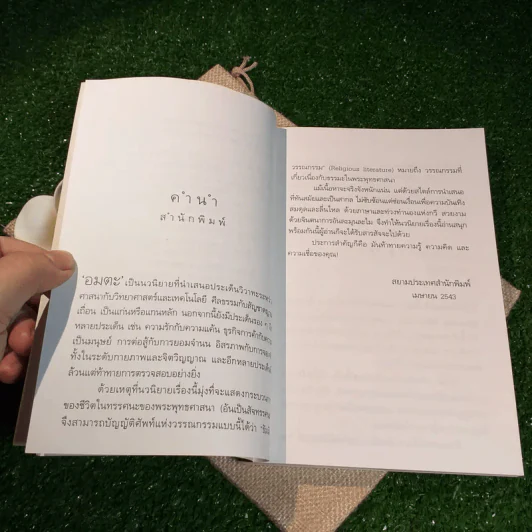 คำนำ
สำนักพิมพ์
'อมตะ' เป็นนวนิยายที่นำเสนอประเด็นวิวาทะระหว่าง
ศาสนากับวิทยาศาสตร์และเทคโนโลยี ศีลธรรมกับสัญชาตญาณ
เถื่อน เป็นแก่นหรือแกนหลัก นอกจากนี้ยังมีประเด็นรอง ๆ
หลายประเด็น เช่น ความรักกับความแค้น ธุรกิจการค้ากับความ
เป็นมนุษย์ การต่อสู้กับการยอมจำนน อิสรภาพกับการจอง
ทั้งในระดับกายภาพและจิตวิญญาณ และอีกหลายประเด็น
ล้วนแต่ท้าทายการตรวจสอบอย่างยิ่ง
ด้วยเหตุที่นวนิยายเรื่องนี้มุ่งที่จะแสดงกระบวน
ของชีวิตในทรรศนะของพระพุทธศาสนา (อันเป็นสัจทรรศน์
จึงสามารถบัญญัติศัพท์แห่งวรรณกรรมแบบนี้ได้ว่า
วรรณกรรม" (Religious literature) หมายถึง วรรณกรรมที่
เกี่ยวเนื่องกับธรรมะในพระพุทธศาสนา
แม้เนื้อหาจะจริงจังหนักแน่น แต่ด้วยสไตล์การนำเสนอ
ที่ทันสมัยและเป็นสากล ไม่ซับซ้อนแต่ซ่อนเงื่อนเพื่อความบันเทิง
สนุกและตื่นใจ ด้วยภาษาและท่วงทำนองแห่งกวี สวยงาม
ด้วยจินตนาการอันละมุนละไม จึงทำให้นวนิยายเรื่องนี้อ่านสนุก
พร้อมกันนี้ผู้อ่านก็จะได้รับสารสัจจะไปด้วย
ประการสำคัญก็คือ มันท้าทายความรู้ ความคิด และ
ความเชื่อของคุณ!
สยามประเทศสำนักพิมพ์
เมษายน 2543